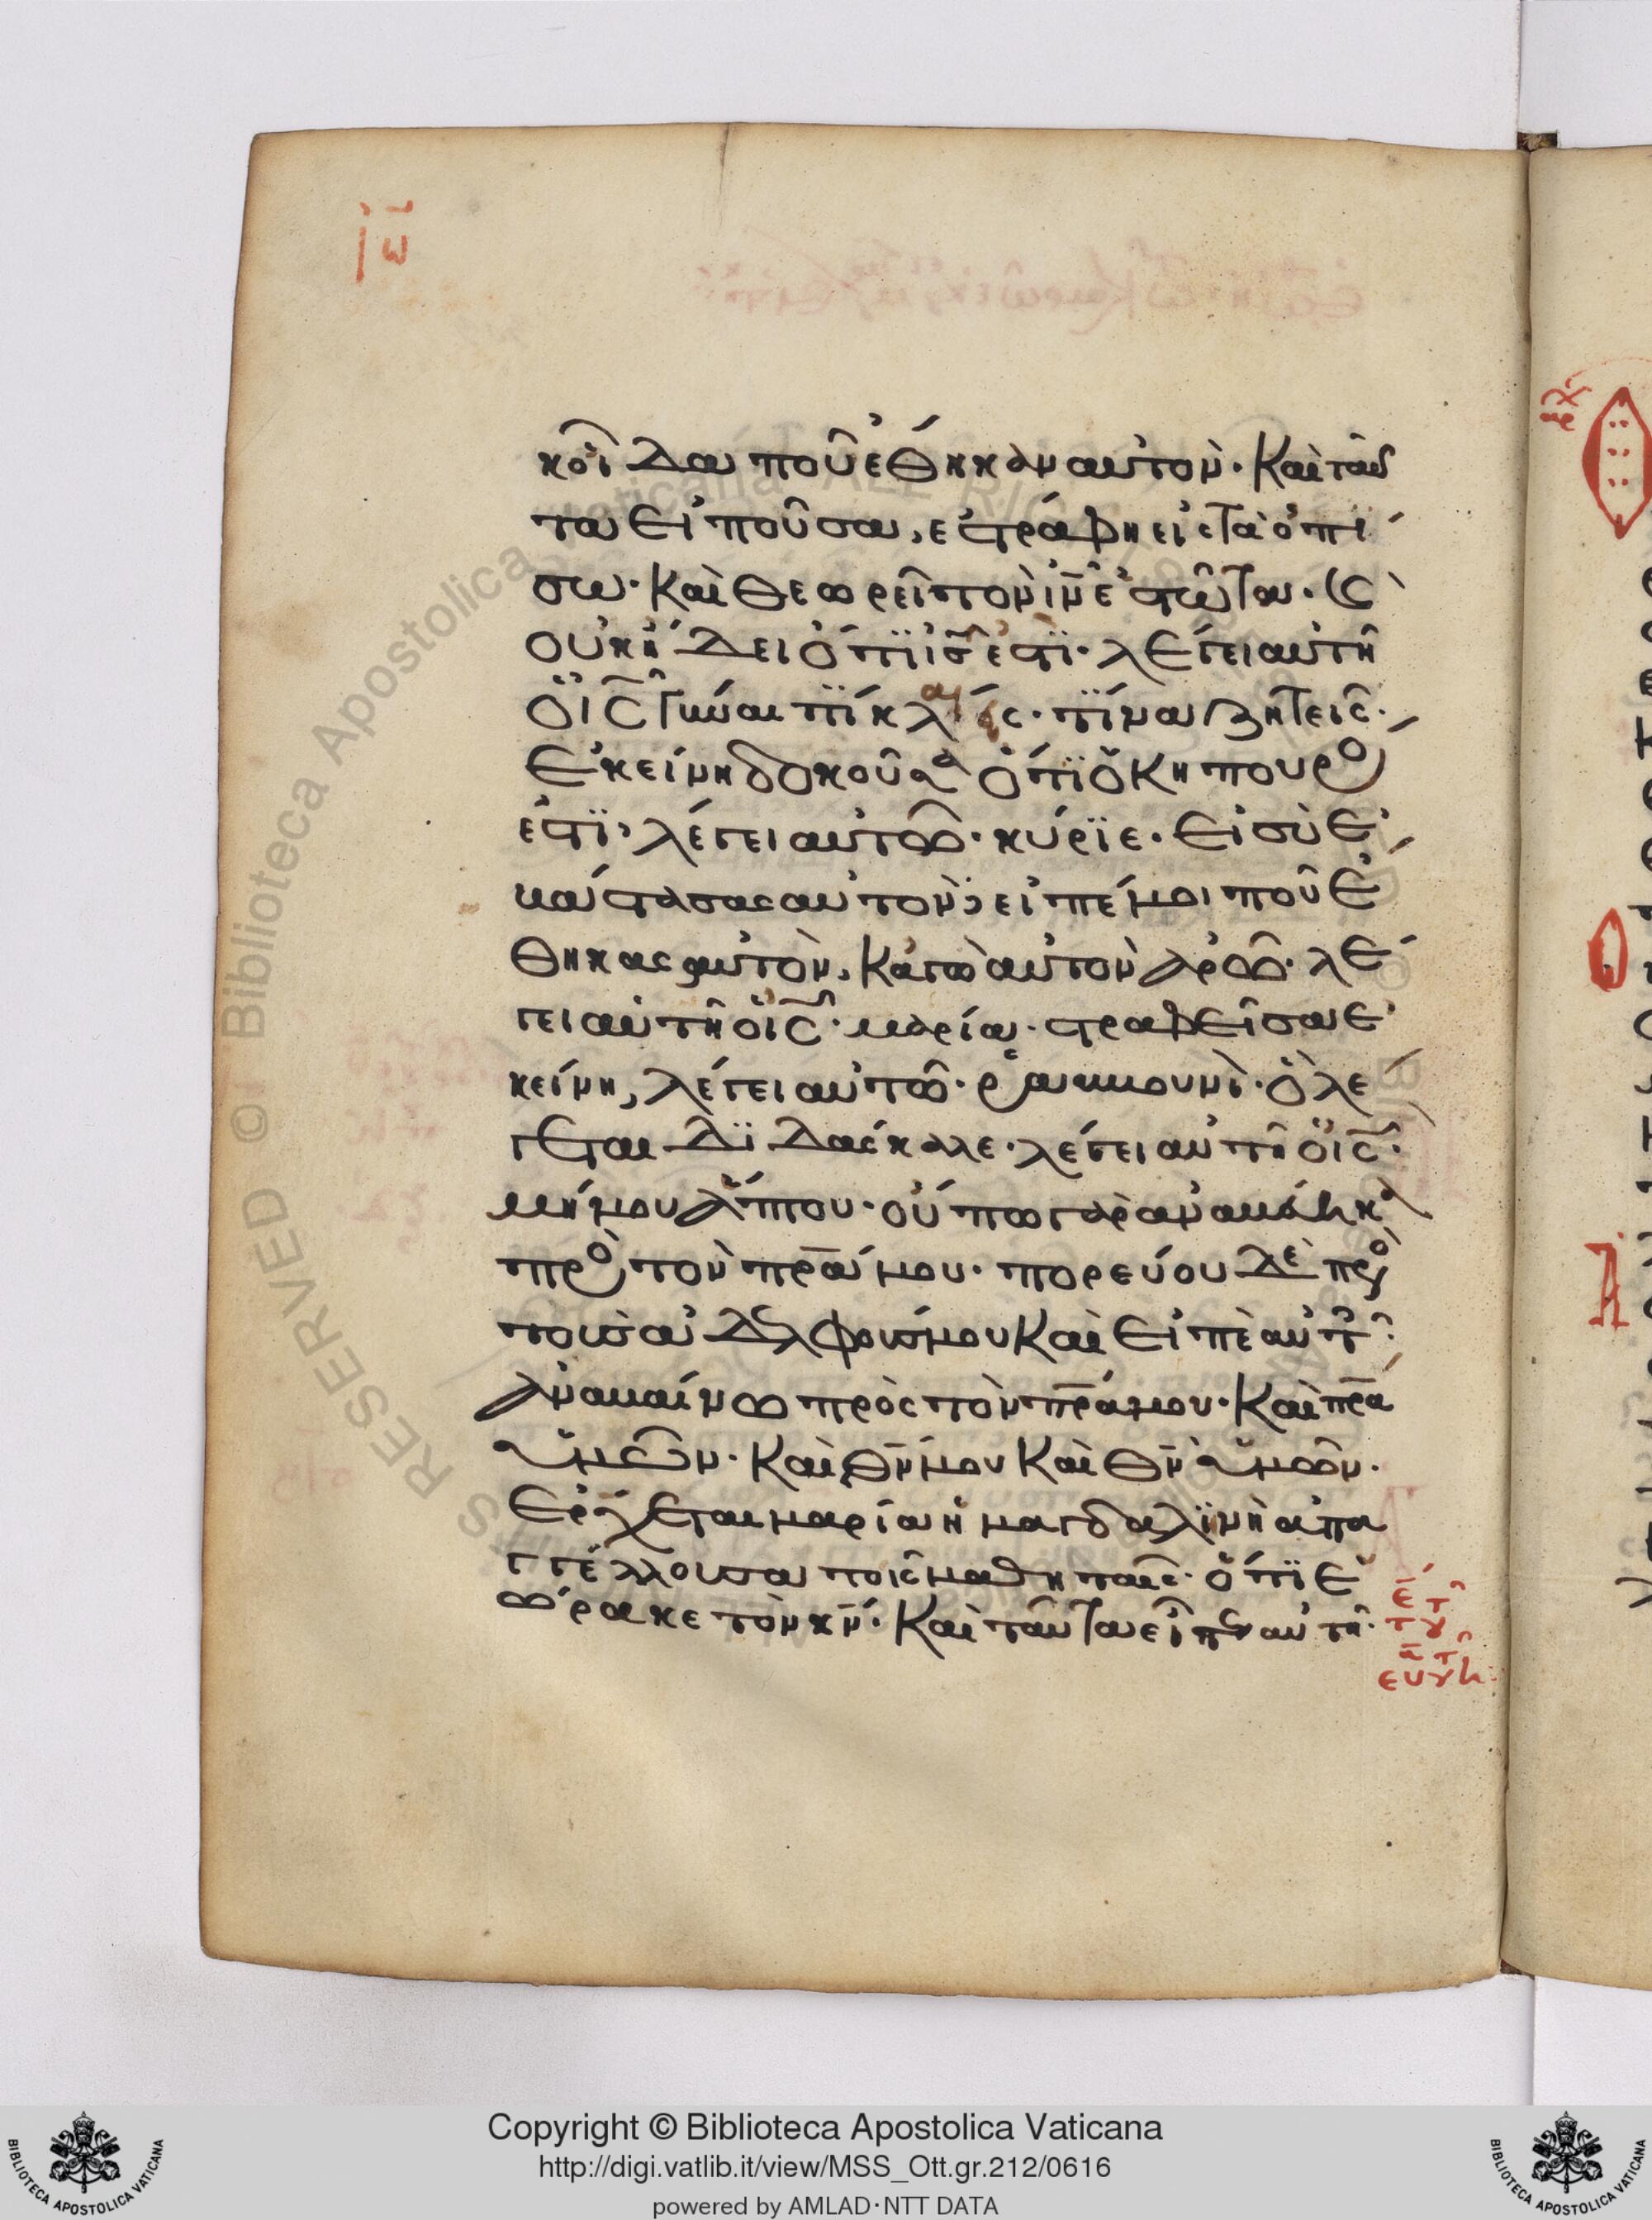 ιω
κοῖδα ποῦ ἔθηκαν αυτον· Καὶ ταῦ
τα εἰποῦσα, εστράφη εἰς τὰ ὀπί
σω· Καὶ θεωρεῖ τὸν ιν̄ ἑστῶτα· (ς
οὐκ ἤδει ὅτι ις̄ ἐστι· λέγει αὐτῆ
ὁ ις̄ Γύναι τί κλαίεις· τίνα ζητεῖς·
Ἐκείνη δοκοῦσα ὅτι ὁ Κηπουρο
ἐστι· λέγει αὐτῶ· κύριε· Εἰ σὺ ἐ
βάστασας αυτὸν, εἰπέ μοι ποῦ ἔ
θηκας αὐτὸν, Κἀγὼ αὐτὸν ἀρῶ· λέ
γει αὐτῆ ὁ ις̄· μαρία· στραφεῖσα ἐ
κείνη, λέγει αυτῶ· ραββουνὶ· ὃ λέ
γεται Διδάσκαλε· λέγει αὐτῆ ὁ ις̄·
μή μου ἅπτου· οὔπω γὰρ ἀναβέβηκα
πρὸ τὸν πρ̄α μου· πορεύου Δὲ πρὸ
τοὺς ἀδελφούς μου Καὶ εἰπὲ αὐτ
ἀναβαίνω πρὸς τὸν πρ̄α μου· Καὶ πρ̄α
ὑμῶν· Καὶ θν̄ μου Καὶ θν̄ ὑμῶν·
Ἔρχεται μαρία ἡ μαγδαλινὴ ἀπα
γγέλλουσα τοῖς μαθηταῖς· ὅτι ἑ
ώρακε τὸν κν̄· Καὶ ταῦτα εἶπεν αὐτῆ·
Copyright © Biblioteca Apostolica Vaticana
http://digi.vatlib.it/view/MSS_Ott.gr.212/0616
powered by AMLAD·NTT DATA